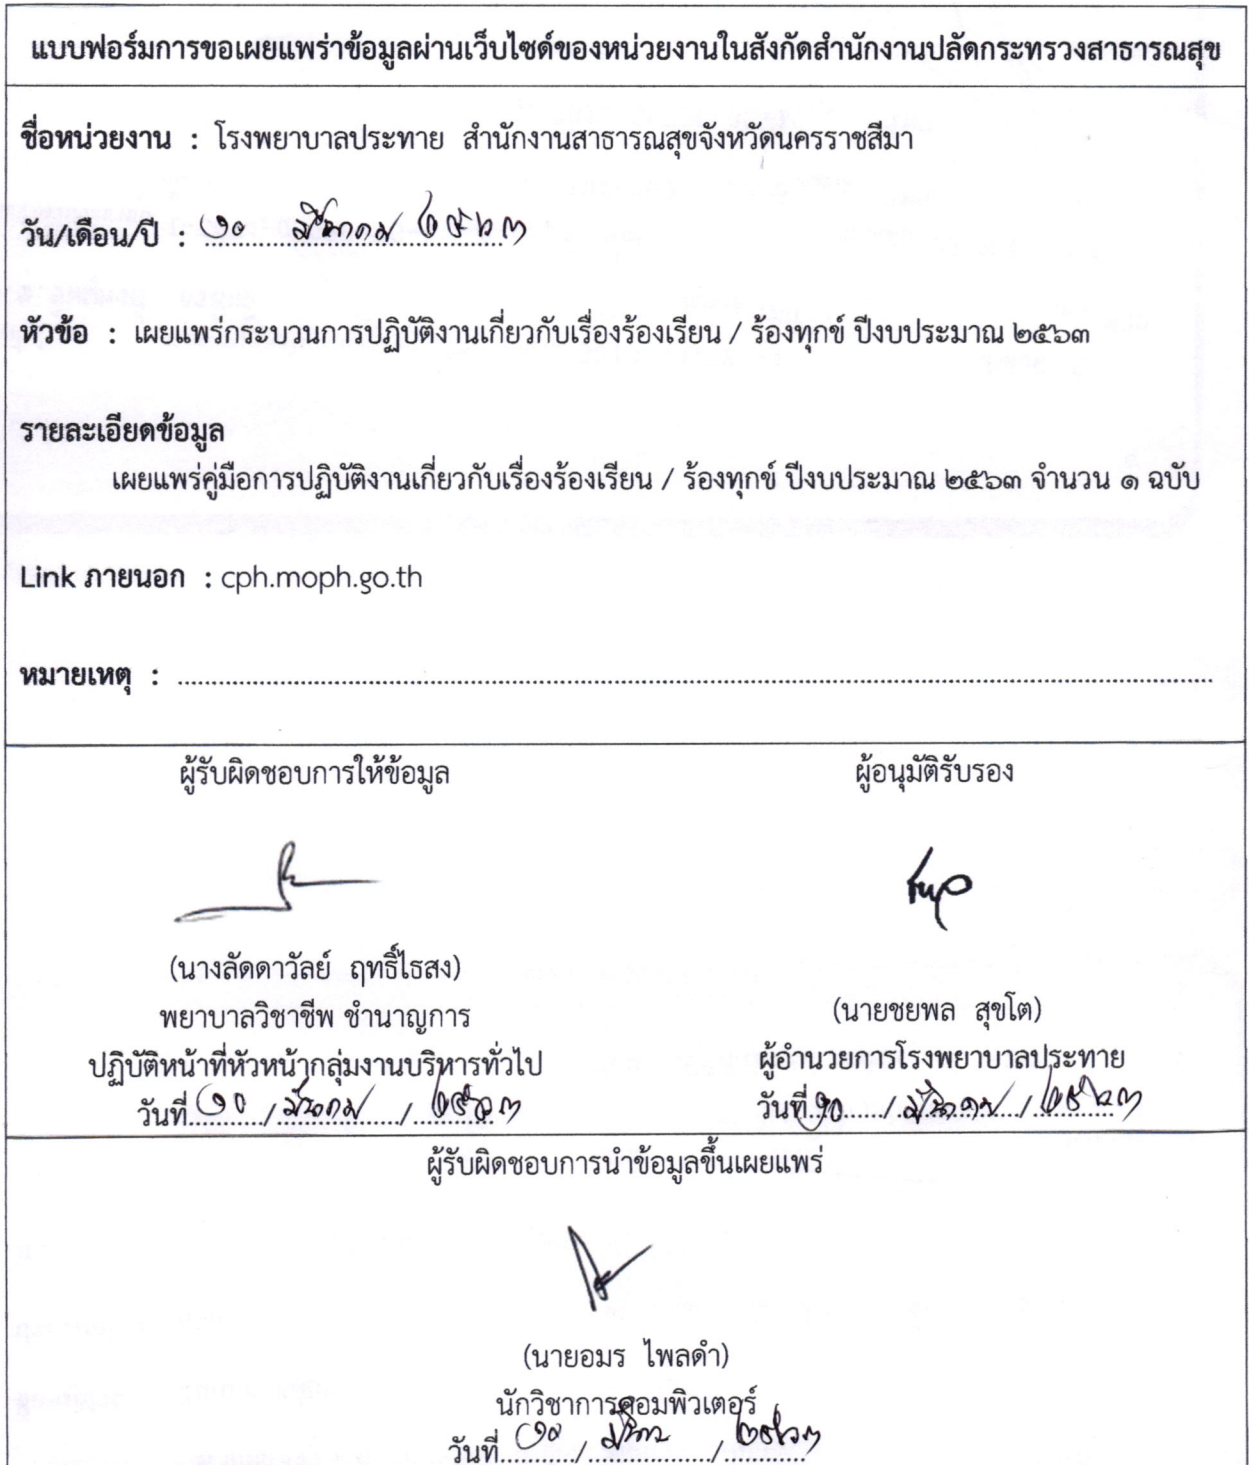 แบบฟอร์มการขอเผยแพร่าข้อมูลผ่านเว็บไซด์ของหน่วยงานในสังกัดสำนักงานปลัดกระทรวงสาธารณสุข
ชื่อหน่วยงาน : โรงพยาบาลประทาย สำนักงานสาธารณสุขจังหวัดนครราชสีมา
วัน/เดือน/ปี : ๑๐ มีนาคม ๒๕๖๓
หัวข้อ : เผยแพร่กระบวนการปฏิบัติงานเกี่ยวกับเรื่องร้องเรียน / ร้องทุกข์ ปีงบประมาณ ๒๕๖๓
รายละเอียดข้อมูล
เผยแพร่คู่มือการปฏิบัติงานเกี่ยวกับเรื่องร้องเรียน / ร้องทุกข์ ปีงบประมาณ ๒๕๖๓ จำนวน ๑ ฉบับ
Link ภายนอก : cph.moph.go.th
หมายเหตุ :
ผู้รับผิดชอบการให้ข้อมูล
(นางลัดดาวัลย์ ฤทธิ์ไธสง)
พยาบาลวิชาชีพ ชำนาญการ
ปฏิบัติหน้าที่หัวหน้ากลุ่มงานบริหารทั่วไป
วันที่ ๑๐ / มีนาคม / ๒๕๖๓
ผู้อนุมัติรับรอง
(นายชยพล สุขโต)
ผู้อำนวยการโรงพยาบาลประทาย
วันที่ ๑๐ / มีนาคม / ๒๕๖๓
ผู้รับผิดชอบการนำข้อมูลขึ้นเผยแพร่
(นายอมร ไพลดำ)
นักวิชาการคอมพิวเตอร์
วันที่ ๑๐ / มีนาคม / ๒๕๖๓